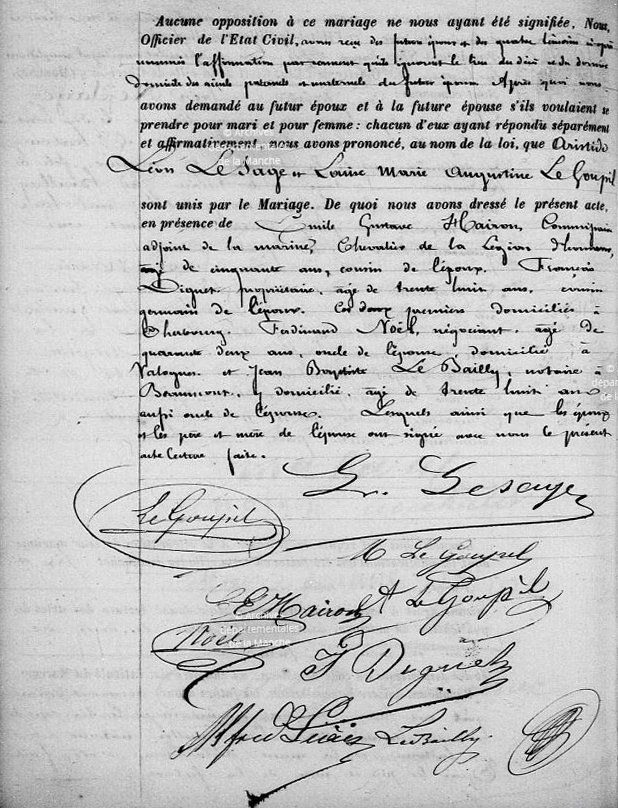 Aucune opposition à ce mariage ne nous ayant été signifiée. Nous,
Officier de l'Etat Civil, avons reçu des futurs époux et des quatre témoins ci-après
nommés l'affirmation par serment qu'ils ignorent le lieu du décès et du dernier
domicile des aïeuls paternels et maternels du futur époux. Après quoi nous
avons demandé au futur époux et à la future épouse s'ils voulaient se
prendre pour mari et pour femme : chacun d'eux ayant répondu séparément
et affirmativement, nous avons prononcé, au nom de la loi, que Aristide
Léon Le Sage et Louise Marie Augustine Le Goupil
sont unis par le Mariage. De quoi nous avons dressé le présent acte,
en présence de Emile Gustave Hairon, Commissaire
adjoint de la marine, Chevalier de la Légion d'honneur,
âgé de cinquante ans, cousin de l'époux. François
Diguet, propriétaire, âgé de trente huit ans, cousin
germain de l'époux. Ces deux premiers domiciliés à
Cherbourg. Ferdinand Noël, négociant, âgé de
quarante deux ans, oncle de l'épouse, domicilié à
Valognes. et Jean Baptiste Le Bailly, notaire à
Beaumont, y domicilié, âgé de trente huit ans
aussi oncle de l'épouse. Lesquels ainsi que les époux
et les père et mère de l'épouse ont signé avec nous le présent
acte lecture faite.
Lesage
LeGoupil
M Le Goupil
E Hairon A LeGoupil
Noël
F Diguet
Alfred LeBailly
départementales
de la Manche